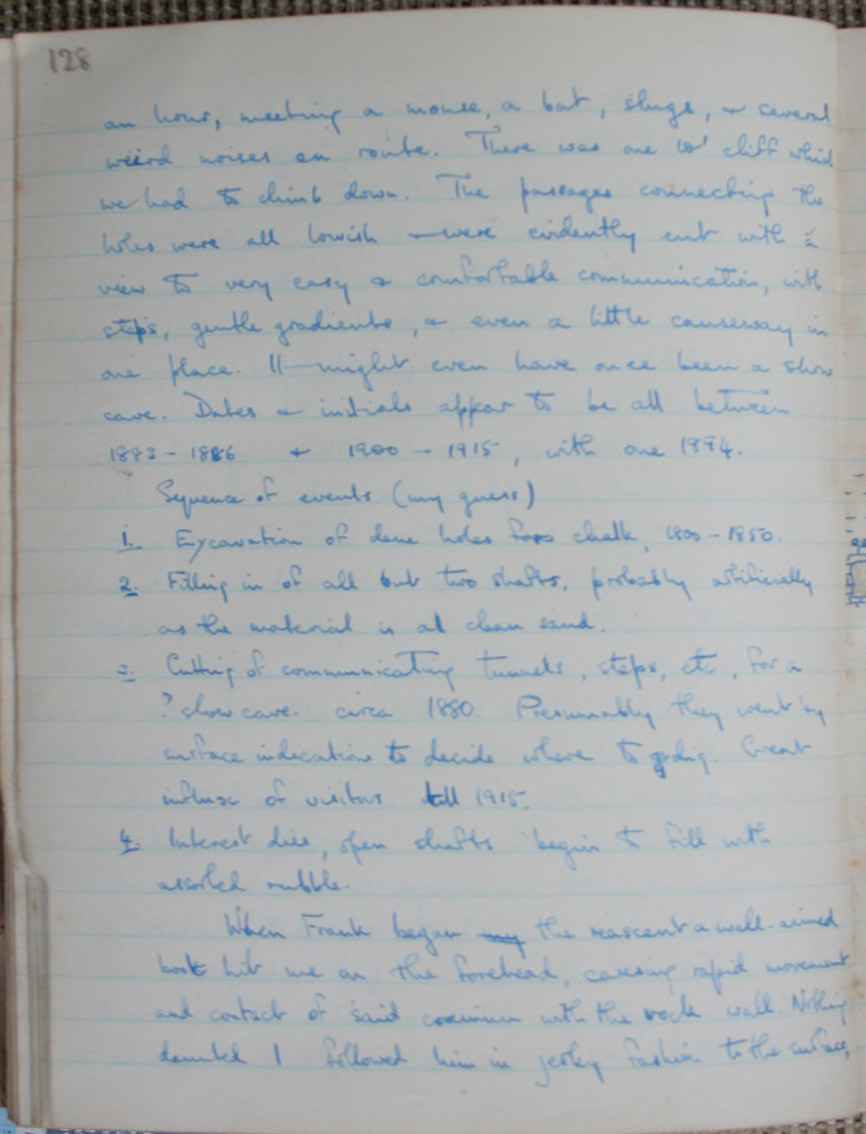 128
an hour, meeting a mouse, a bat, slugs, & several
weird noises en route. There was one 10' cliff which
we had to climb down. The passages connecting the
holes were all lowish & were evidently cut with a
view to very easy & comfortable communication, with
steps, gentle gradients, & even a little causeway in
one place. It might even have once been a show
cave. Dates & initials appear to be all between
1883 - 1886 & 1900 - 1915, with one 1894.
Sequence of events (my guess)
1. Excavation of dene holes for chalk, 1800 - 1850.
2. Filling in of all but two shafts, probably artificially
as the material is all clean sand.
3. Cutting of communicating tunnels, steps, etc, for a
? show cave. circa 1880. Presumably they went by
surface indications to decide where to dig. Great
influx of visitors till 1915.
4. Interest dies, open shafts begin to fill with
assorted rubble.
When Frank began the reascent a well-aimed
boot hit me on the forehead, causing rapid movement
and contact of said cranium with the rock wall. Nothing
daunted I followed him in jerky fashion to the surface,